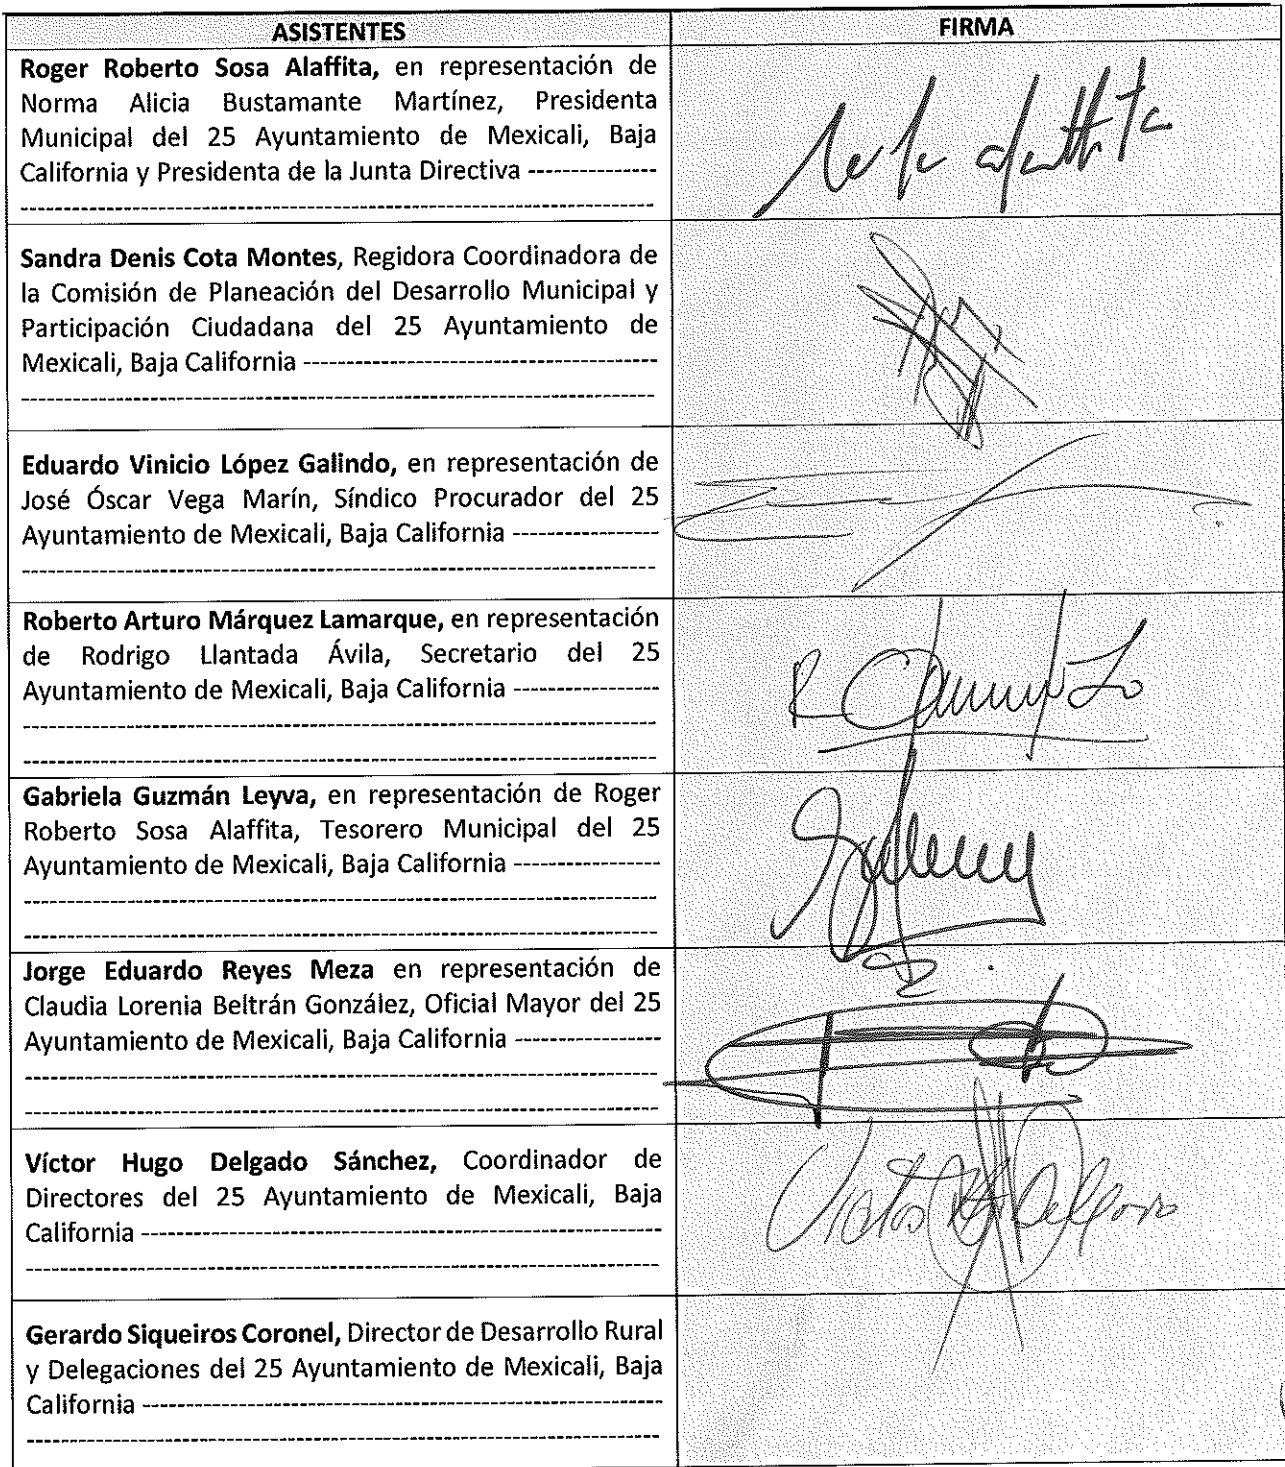 ASISTENTES
FIRMA
Roger Roberto Sosa Alaffita, en representación de
Norma Alicia Bustamante Martínez, Presidenta
Municipal del 25 Ayuntamiento de Mexicali, Baja
California y Presidenta de la Junta Directiva ---------------
Sandra Denis Cota Montes, Regidora Coordinadora de
la Comisión de Planeación del Desarrollo Municipal y
Participación Ciudadana del 25 Ayuntamiento de
Mexicali, Baja California ----------------------------------------
Eduardo Vinicio López Galindo, en representación de
José Óscar Vega Marín, Síndico Procurador del 25
Ayuntamiento de Mexicali, Baja California -----------------
Roberto Arturo Márquez Lamarque, en representación
de Rodrigo Llantada Ávila, Secretario del 25
Ayuntamiento de Mexicali, Baja California -----------------
Gabriela Guzmán Leyva, en representación de Roger
Roberto Sosa Alaffita, Tesorero Municipal del 25
Ayuntamiento de Mexicali, Baja California -----------------
Jorge Eduardo Reyes Meza en representación de
Claudia Lorenia Beltrán González, Oficial Mayor del 25
Ayuntamiento de Mexicali, Baja California -----------------
Víctor Hugo Delgado Sánchez, Coordinador de
Directores del 25 Ayuntamiento de Mexicali, Baja
California ------------------------------------------------------------
Victor Delgado
Gerardo Siqueiros Coronel, Director de Desarrollo Rural
y Delegaciones del 25 Ayuntamiento de Mexicali, Baja
California ------------------------------------------------------------